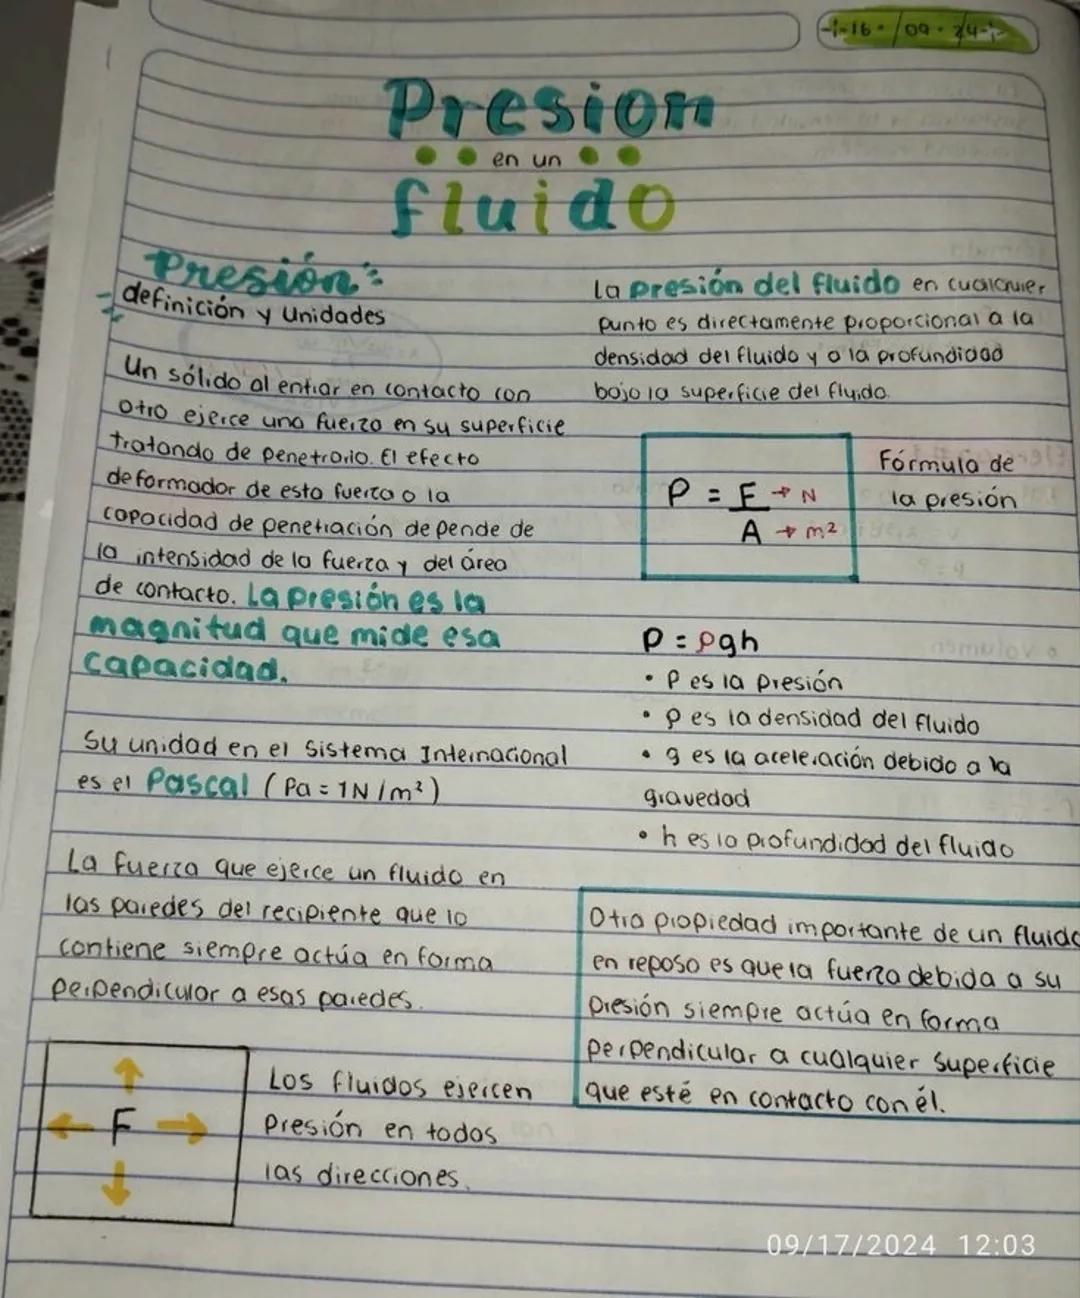 -¦-16 · / 09 · 24-¦-
Presion
en un
fluido
Presión:
definición y Unidades
Un sólido al entrar en contacto con
otro ejerce una fuerza en su superficie
tratando de penetrarlo. El efecto
deformador de esta fuerza o la
capacidad de penetración depende de
la intensidad de la fuerza y del área
de contacto. La presión es la
magnitud que mide esa
capacidad.
Su unidad en el Sistema Internacional
es el Pascal (Pa = 1N/m²)
La fuerza que ejerce un fluido en
las paredes del recipiente que lo
contiene siempre actúa en forma
perpendicular a esas paredes.
F
Los fluidos ejercen
Presión en todas
las direcciones.
La presión del fluido en cualquier
punto es directamente proporcional a la
densidad del fluido y a la profundidad
bajo la superficie del fluido.
P = F → N
A → m²
Fórmula de
la presión
P = ρgh
• P es la presión
• ρ es la densidad del fluido
• g es la aceleración debido a la
gravedad
• h es la profundidad del fluido
Otra propiedad importante de un fluido
en reposo es que la fuerza debida a su
presión siempre actúa en forma
perpendicular a cualquier superficie
que esté en contacto con él.
09/17/2024 12:03